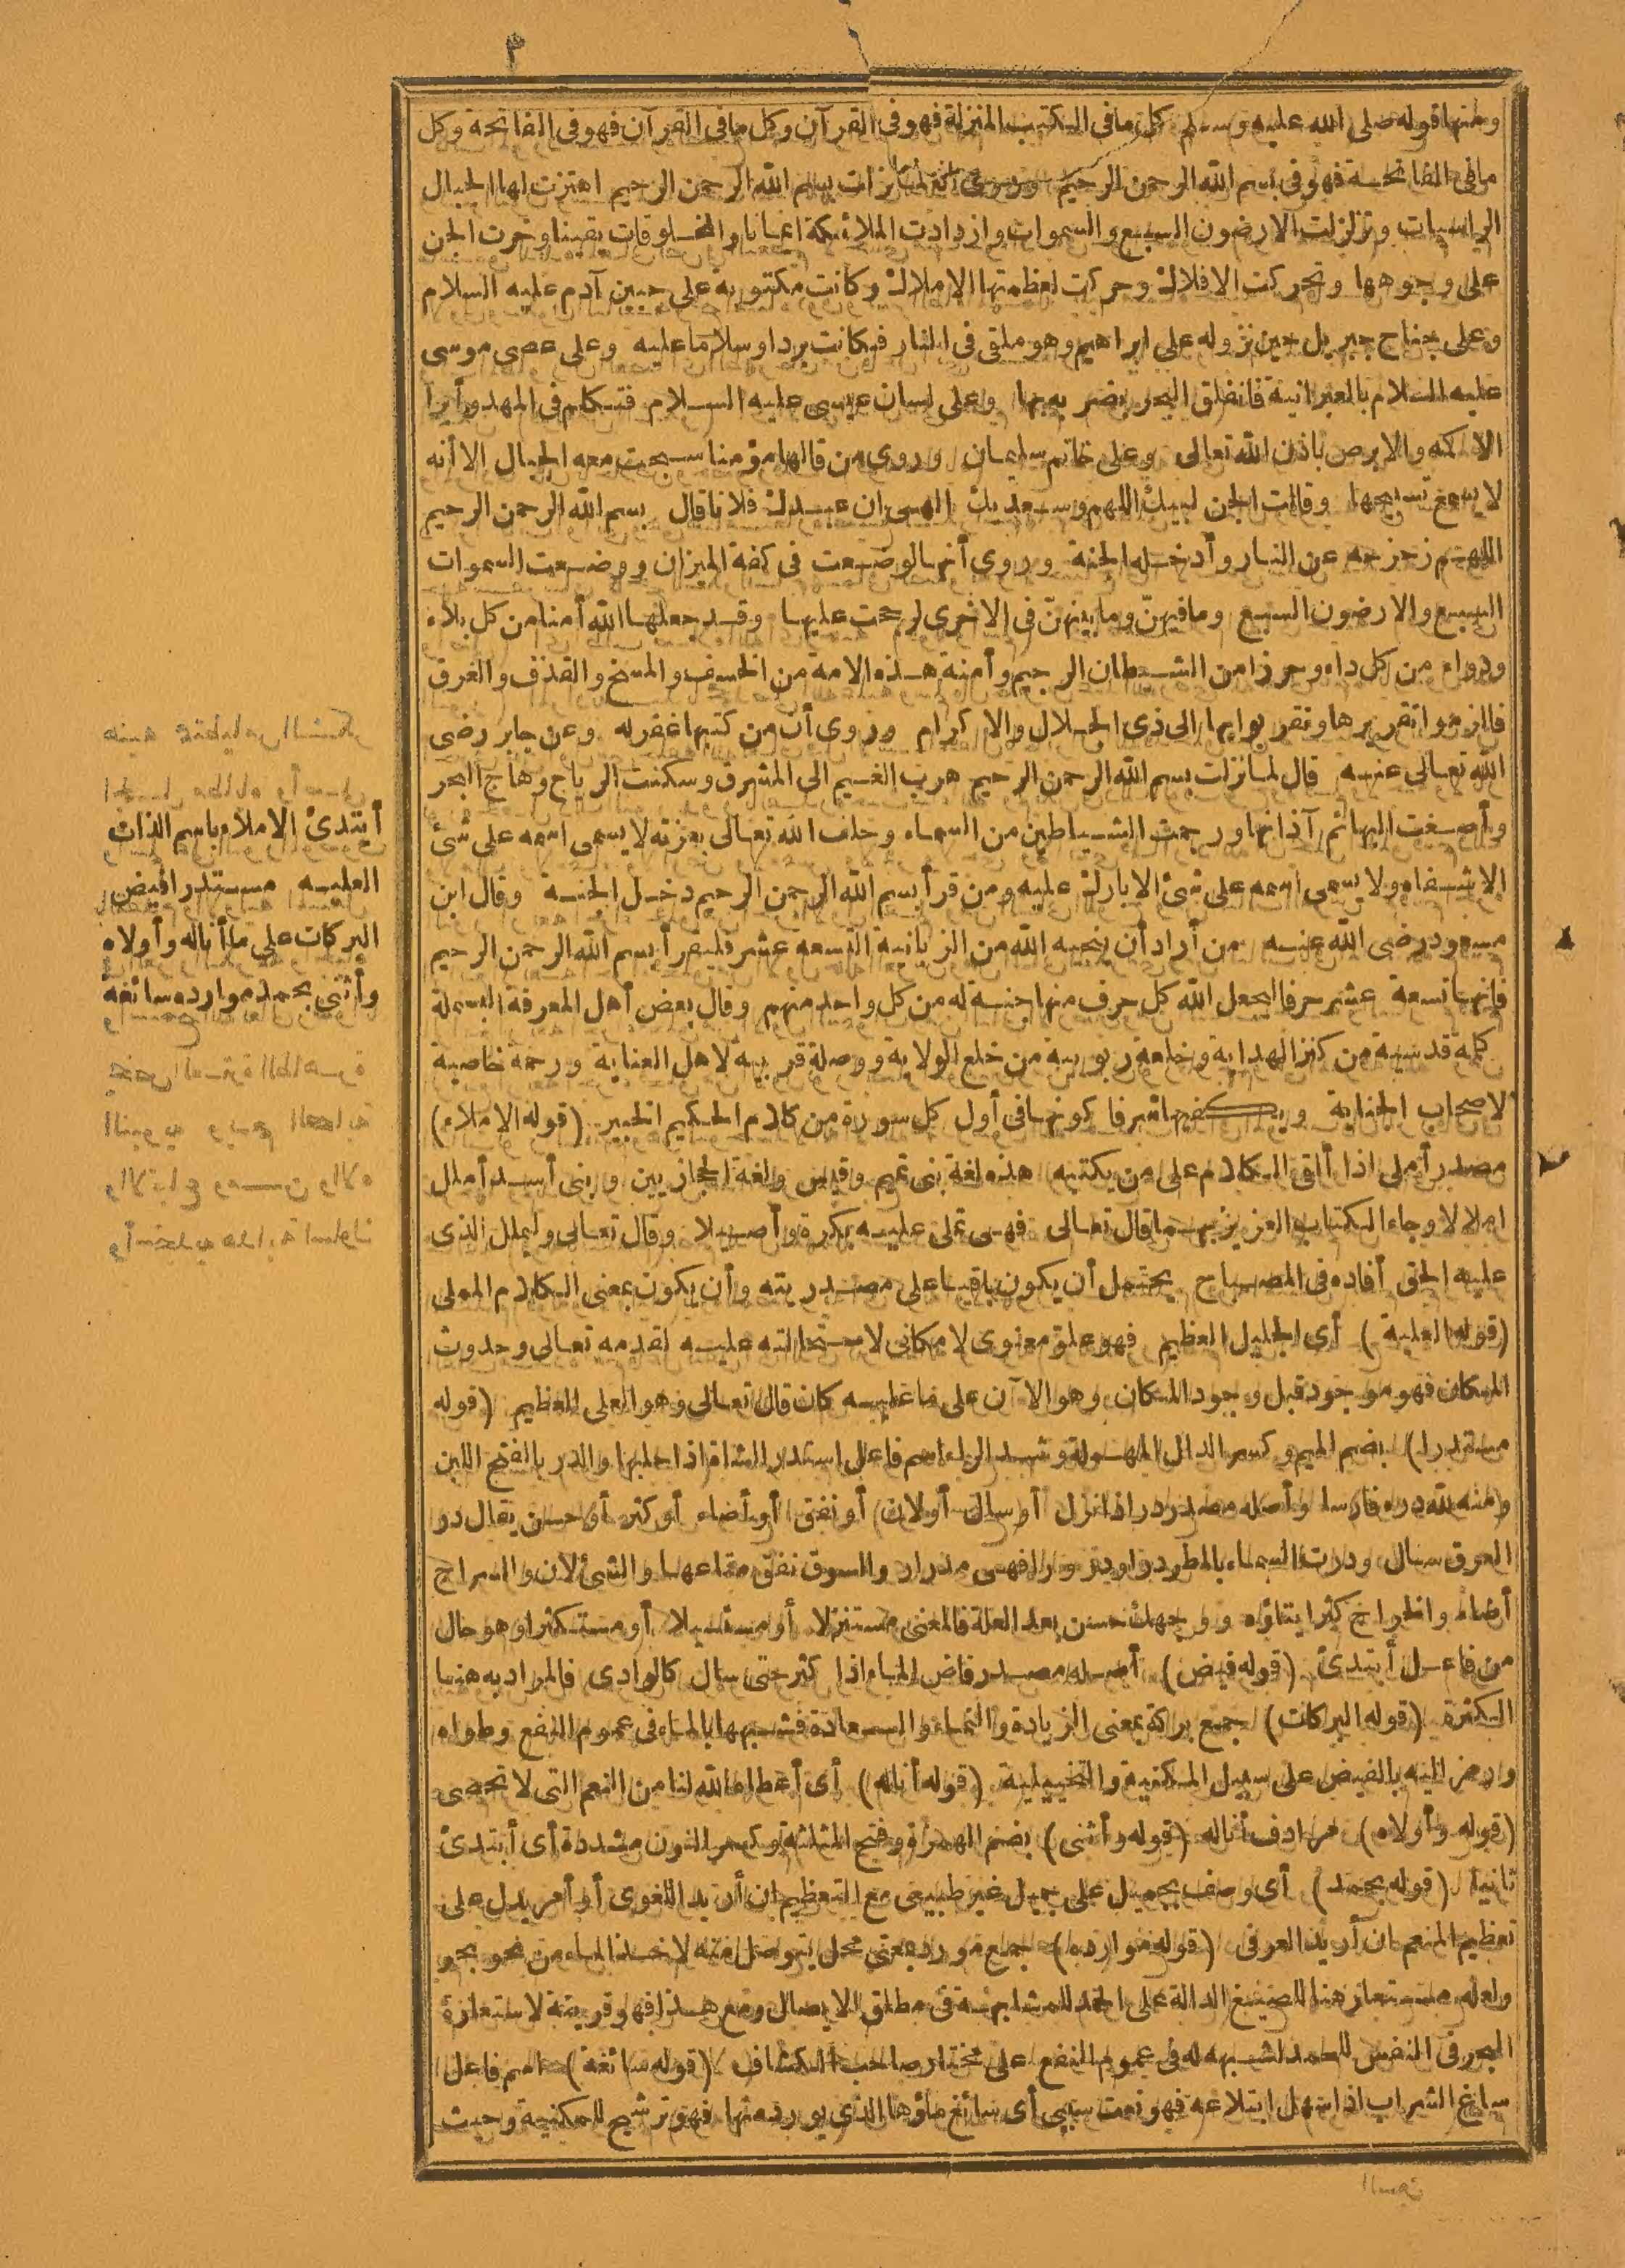 ٣
ومنها قوله صلى الله عليه وسلم كل ما فى الكتب المنزلة فهو فى القرآن وكل ما فى القرآن فهو فى الفاتحة وكل
ما فى الفاتحة فهو فى بسم الله الرحمن الرحيم وروى انه لما نزلت بسم الله الرحمن الرحيم اهتزت لها الجبال
الراسيات وتزلزلت الارضون السبع والسموات وازدادت الملائكة ايمانا والمخلوقات يقينا وخرت الجن
على وجوهها وتحركت الافلاك وحركت لعظمتها الاملاك وكانت مكتوبة على جبين آدم عليه السلام
وعلى جناح جبريل حين نزوله على ابراهيم وهو ملقى فى النار فكانت بردا وسلاما عليه وعلى عصى موسى
عليه السلام بالعبرانية فانفلق البحر بضربه بها وعلى لسان عيسى عليه السلام فتكلم فى المهد وأبرأ
الاكمه والابرص باذن الله تعالى وعلى خاتم سليمان وروى من قالها مؤمنا سبحت معه الجبال الا أنه
لا يسمع تسبيحها وقالت الجن لبيك اللهم وسعديك الهى ان عبدك فلانا قال بسم الله الرحمن الرحيم
اللهم زحزحه عن النار وأدخله الجنة وروى أنها لو وضعت فى كفة الميزان ووضعت السموات
السبع والارضون السبع وما فيهنّ وما بينهنّ فى الاخرى لرجحت عليها وقد جعلها الله أمنا من كل بلاء
ودواء من كل داء وحرزا من الشيطان الرجيم وأمنة هذه الامة من الخسف والمسخ والقذف والغرق
فالزموا تقريرها وتقربوا بها الى ذى الجلال والاكرام وروى أن من كتبها غفر له وعن جابر رضى
الله تعالى عنه قال لما نزلت بسم الله الرحمن الرحيم هرب الغيم الى المشرق وسكنت الرياح وهاج البحر
وأصغت البهائم آذانها ورجمت الشياطين من السماء وحلف الله تعالى بعزته لا يسمى اسمه على شئ
الا شفاه ولا يسمى اسمه على شئ الا بارك عليه ومن قرأ بسم الله الرحمن الرحيم دخل الجنة وقال ابن
مسعود رضى الله عنه من أراد أن ينجيه الله من الزبانية التسعة عشر فليقرأ بسم الله الرحمن الرحيم
فانها تسعة عشر حرفا ليجعل الله كل حرف منها جنة له من كل واحد منهم وقال بعض أهل المعرفة البسملة
كلمة قدسية من كنز الهداية وخلعة ربوبية من خلع الولاية ووصلة قربية لاهل العناية ورحمة خاصية
لاصحاب الجناية ويكفيها شرفا كونها فى أول كل سورة من كلام الحكيم الخبير (قوله الاملاء)
مصدر أملى اذا ألقى الكلام على من يكتبه هذه لغة بنى تميم وقيس ولغة الحجازيين وبنى أسد أملل
املالا وجاء الكتاب العزيز بهما قال تعالى فهى تملى عليه بكرة وأصيلا وقال تعالى وليملل الذى
عليه الحق أفاده فى المصباح يحتمل أن يكون باقيا على مصدريته وأن يكون بمعنى الكلام المملى
(قوله العلية) أى الجليل العظيم فهو علوّ معنوى لا مكانى لاستحالته عليه لقدمه تعالى وحدوث
المكان فهو موجود قبل وجود المكان وهو الآن على ما عليه كان قال تعالى وهو العلى العظيم (قوله
مستدرا) بضم الميم وكسر الدال المهملة وشد الراء اسم فاعل استدر الشاة اذا حلبها والدر بالفتح اللبن
ومنه لله دره فارسا وأصله مصدر در اذا نزل أو سال أو لان أو نفق أو أضاء أو كثر أو حسن يقال در
العرق سال ودرت السماء بالمطر درا ودرورا فهى مدرار والسوق نفق متاعها والشئ لان والسراج
أضاء والخراج كثر ايتاؤه ووجهك حسن بعد العلة فالمعنى مستنزلا أو مستسيلا أو مستكثرا وهو حال
من فاعل أبتدئ (قوله فيض) أصله مصدر فاض الماء اذا كثر حتى سال كالوادى فالمراد به هنا
الكثرة (قوله البركات) جمع بركة بمعنى الزيادة والنماء والسعادة فشبهها بالماء فى عموم النفع وطواه
ورمز اليه بالفيض على سبيل المكنية والتخييلية (قوله أناله) أى أعطاه الله لنا من النعم التى لا تحصى
(قوله وأولاه) مرادف أناله (قوله وأثنى) بضم الهمزة وفتح المثلثة وكسر النون مشددة أى أبتدئ
ثانيا (قوله بحمد) أى وصف بجميل على جميل غير طبيعى مع التعظيم ان أريد اللغوى أو أمر يدل على
تعظيم المنعم ان أريد العرفى (قوله موارده) جمع مورد بمعنى محل يتوصل منه لاخذ الماء من نحو بحر
ولعله مستعار هنا للصيغ الدالة على الحمد للمشابهة فى مطلق الايصال ومع هذا فهو قرينة لاستعارة
البحر فى النفس للحمد لشبهه له فى عموم النفع على مختار صاحب الكشاف (قوله سائغة) اسم فاعل
ساغ الشراب اذا سهل ابتلاعه فهو نعت سببى أى سائغ ماؤها الذى يورد منها فهو ترشيح للمكنية وحيث
أبتدئ الاملاء باسم الذات
العلية مستدرا فيض
البركات على ما أناله وأولاه
وأثنى بحمد موارده سائغة